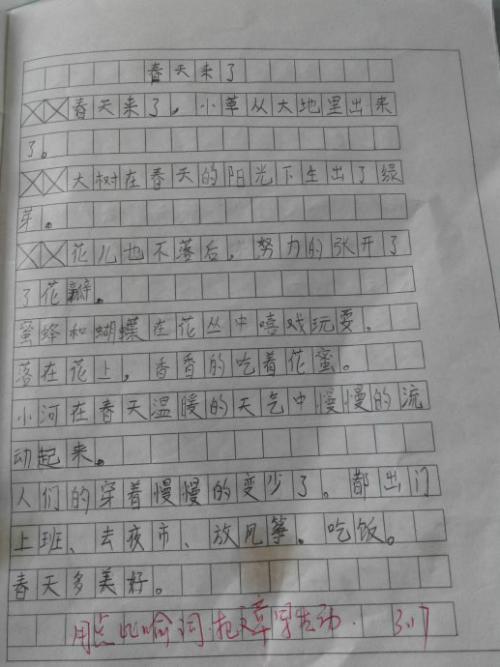 春天来了
春天来了，小草从大地里出来
了。
大树在春天的阳光下生出了绿
芽。
花儿也不落后，努力的张开了
了花瓣。
蜜蜂和蝴蝶在花丛中嘻戏玩耍，
落在花上，香香的吃着花蜜。
小河在春天温暖的天气中慢慢的流
动起来。
人们的穿着慢慢的变少了。都出门
上班、去夜市、放风筝。吃饭。
春天多美好。
用点比喻词.把文章写生动. 3.17